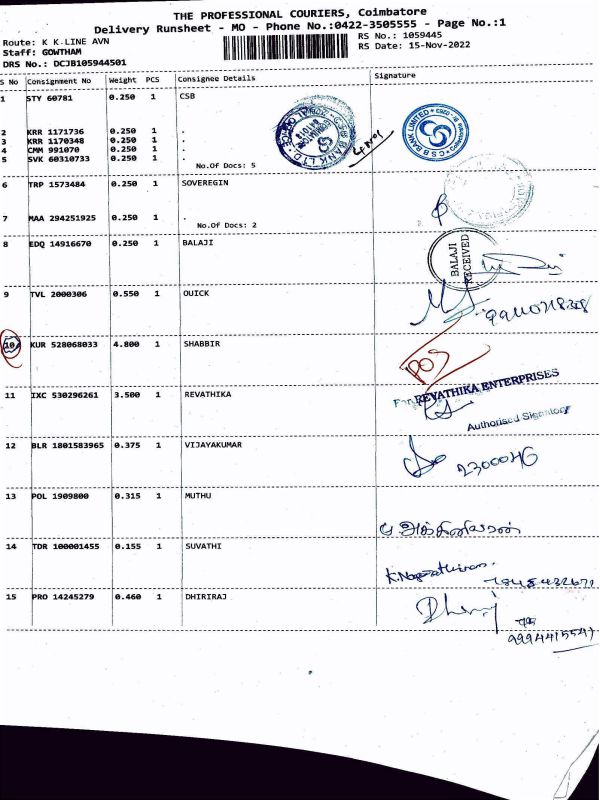 THE PROFESSIONAL COURIERS, Coimbatore
Delivery Runsheet - MO - Phone No.:0422-3505555 - Page No.:1
Route: K K-LINE AVN
RS No.: 1059445
Staff: GOWTHAM
RS Date: 15-Nov-2022
DRS No.: DCJB105944501
S No Consignment No Weight PCS Consignee Details Signature
1 STY 60781 0.250 1 CSB
2 KRR 1171736 0.250 1 .
3 KRR 1170348 0.250 1 .
4 CMM 991070 0.250 1 .
5 SVK 60310733 0.250 1 .
No.Of Docs: 5
CSB BANK LIMITED
6 TRP 1573484 0.250 1 SOVEREGIN
7 MAA 294251925 0.250 1 .
No.Of Docs: 2
8 EDQ 14916670 0.250 1 BALAJI
BALAJI
RECEIVED
9 TVL 2000306 0.550 1 OUICK
10 KUR 528068033 4.800 1 SHABBIR
POS
11 IXC 530296261 3.500 1 REVATHIKA
For REVATHIKA ENTERPRISES
Authorised Signatory
12 BLR 1801583965 0.375 1 VIJAYAKUMAR
13 POL 1909800 0.315 1 MUTHU
14 TDR 100001455 0.155 1 SUVATHI
15 PRO 14245279 0.460 1 DHIRIRAJ
Dheeraj